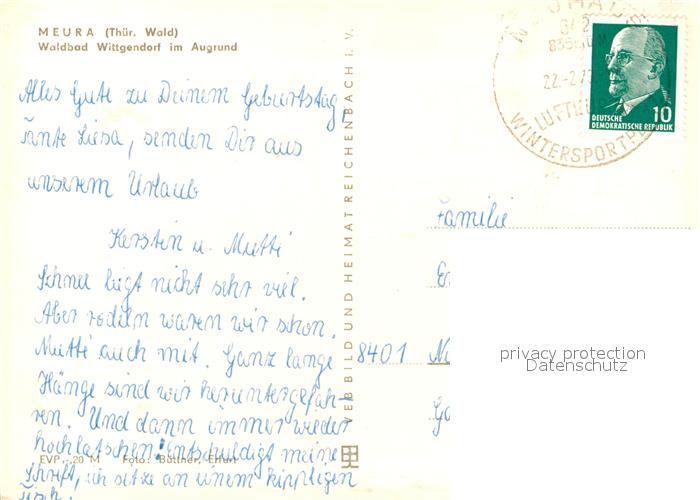 MEURA (Thür. Wald)
Waldbad Wittgendorf im Augrund
Alles Gute zu Deinem Geburtstag,
Tante Liesa, senden Dir aus
unserem Urlaub
Kerstin u. Mutti
Schnee liegt nicht sehr viel.
Aber rodeln waren wir schon.
Mutti auch mit. Ganz lange
Hänge sind wir heruntergefah-
ren. Und dann immer wieder
hochlatschen! Entschuldigt meine
Schrift, ich sitze an einem kipptigen
Tisch.
EVP -,20 M Foto: Büttner, Erfurt
VEB BILD UND HEIMAT REICHENBACH i. V.
22.-2.7
WINTERSPORTPL
DEUTSCHE
DEMOKRATISCHE REPUBLIK
10
Familie
8401
privacy protection
Datenschutz